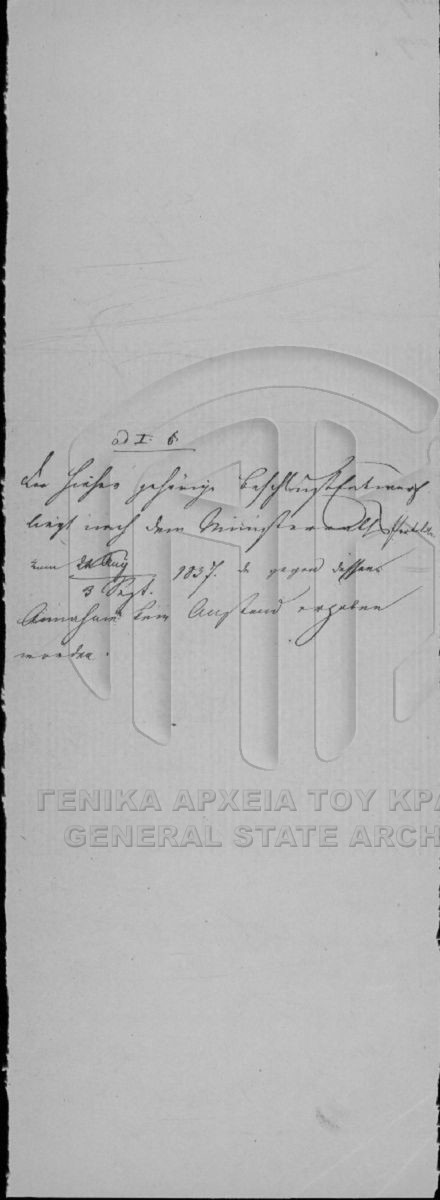 ad I. 6.
Der hieher gehörige Beschlußentwurf
liegt nach dem Ministerrath Protokolle
vom 24 Aug
3 Sept. 1837. da gegen dessen
Annahme kein Anstand erhoben
worden.
ΓΕΝΙΚΑ ΑΡΧΕΙΑ ΤΟΥ ΚΡΑ
GENERAL STATE ARCH